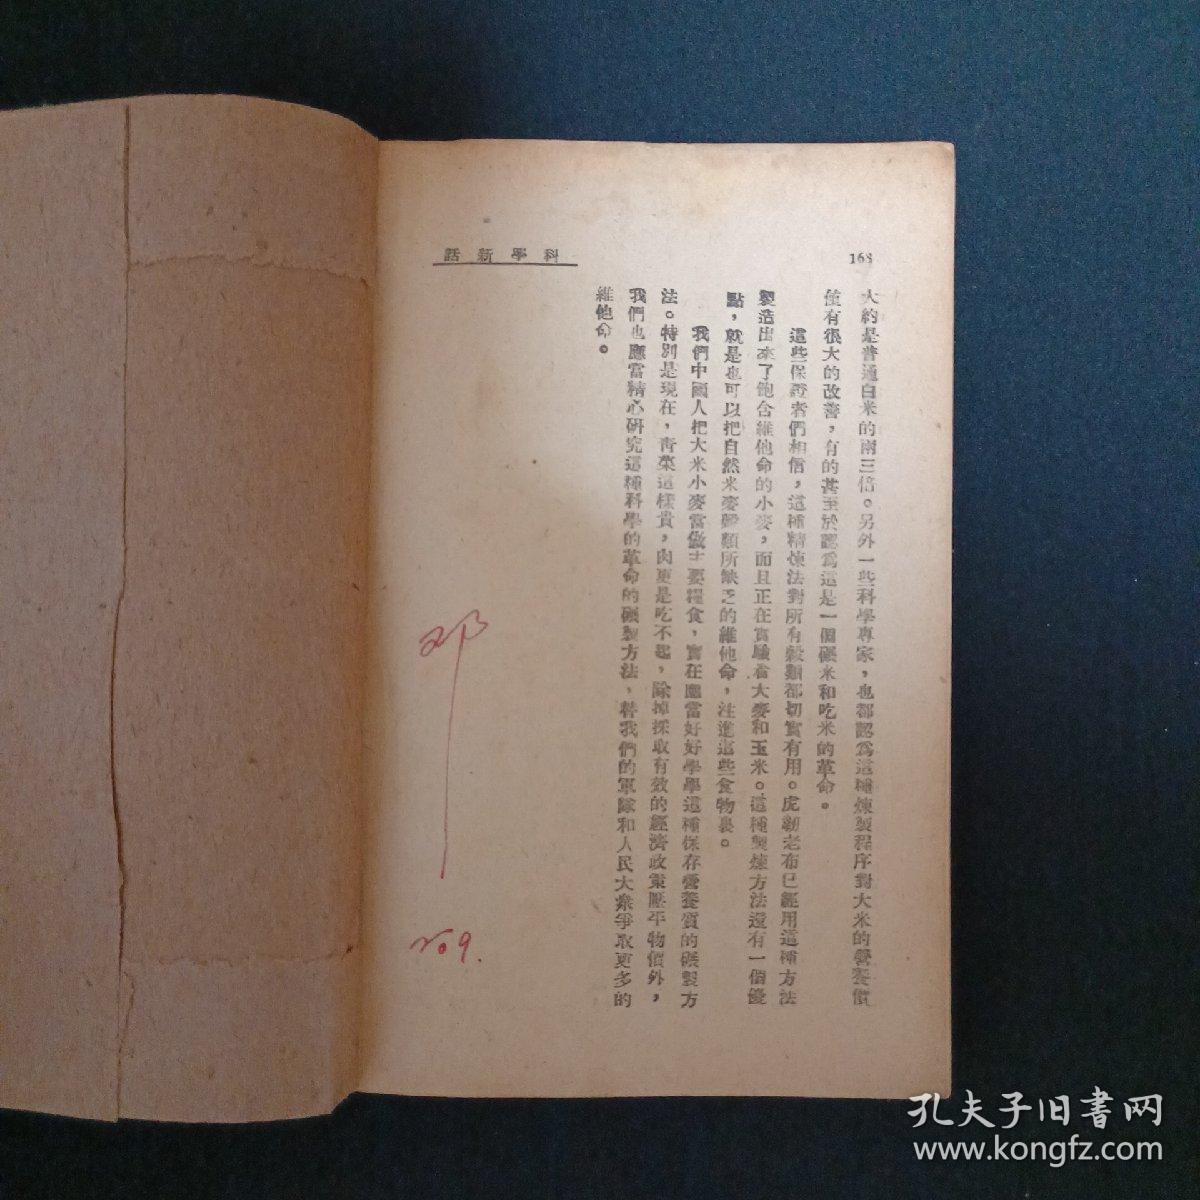 科學新話
168
大約是普通白米的兩三倍。另外一些科學專家，也都認爲這種煉製程序對大米的營養價
值有很大的改善，有的甚至於認爲這是一個碾米和吃米的革命。
這些保證者們相信，這種精煉法對所有穀類都切實有用。虎勒老布已經用這種方法
製造出來了飽含維他命的小麥，而且正在實驗着大麥和玉米。這種製煉方法還有一個優
點，就是也可以把自然米麥穀類所缺乏的維他命，注進這些食物裏。
我們中國人把大米小麥當做主要糧食，實在應當好好學學這種保存營養質的碾製方
法。特別是現在，靑菜這樣貴，肉更是吃不起，除掉採取有效的經濟政策壓平物價外，
我們也應當精心研究這種科學的革命的碾製方法，替我們的軍隊和人民大衆爭取更多的
維他命。
邓
孔夫子旧書网
www.kongfz.com